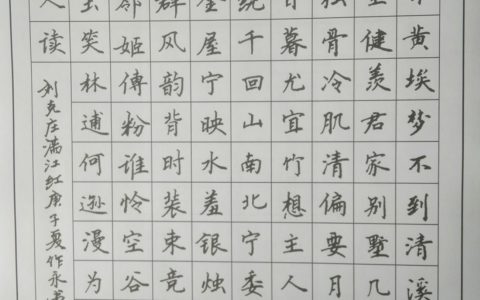 日黄埃梦不到清溪
空健羡君家别墅几
独骨冷肌清偏要月
日暮尤宜竹想主人
绕千回山南北宁委
金屋宁映水羞银烛
群风韵背时装束竞
邻姬傅粉谁怜空谷
玉笑林逋何逊漫为
人读
刘克庄满江红庚子夏作永